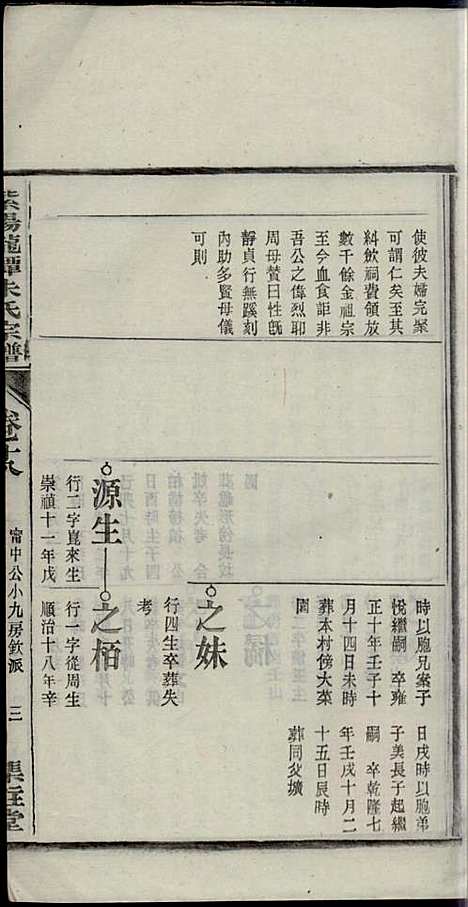 使彼夫婦完聚
可謂仁矣至其
糾飲祠費領放
數千餘金祖宗
至今血食詎非
吾公之偉烈耶
周母贊曰性旣
靜貞行無蹊刻
內助多賢母儀
可則
時以胞兄案子
悅繼嗣 卒雍
正十年壬子十
月十四日未時
葬本村傍大菜
園
日戌時以胞弟
子美長子起繼
嗣 卒乾隆七
年壬戌十月二
十五日辰時
葬同父壙
之妹
行四生卒葬失
考
源生
之栢
行二字崑來生
崇禎十一年戊
行一字從周生
順治十八年辛
紫陽龍潭朱氏宗譜
卷十八
甯中公小九房欽派
三
集註堂